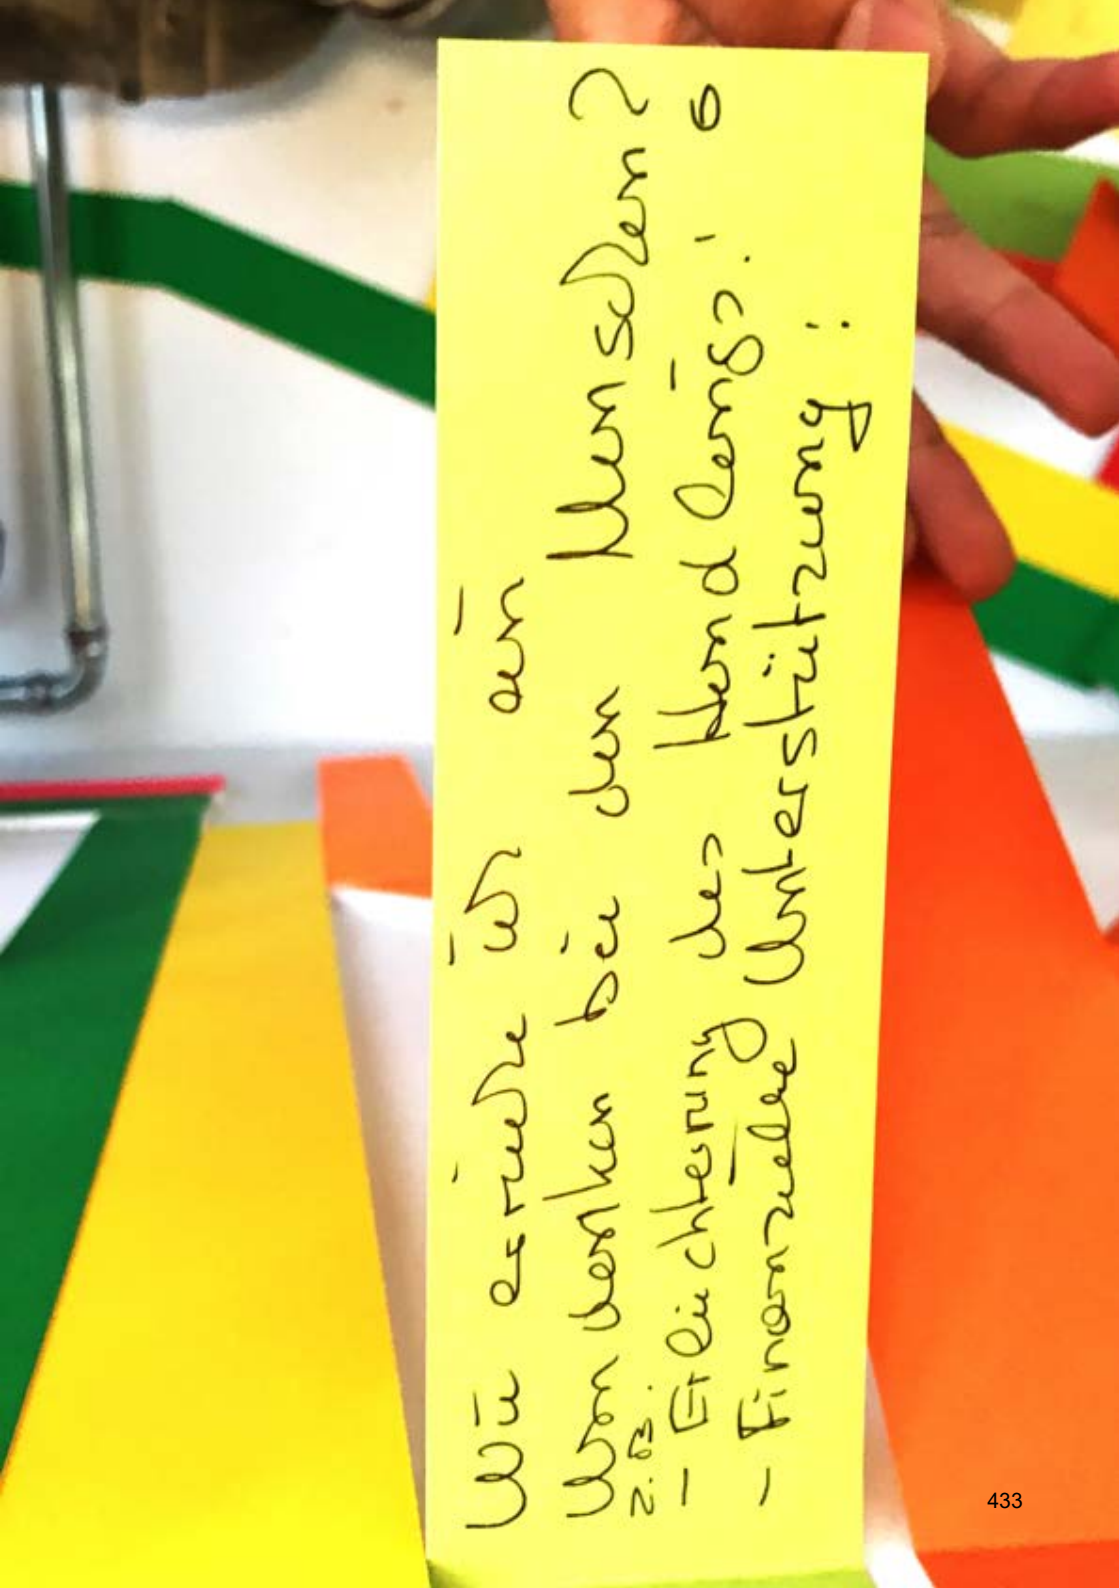 Wie erziehe ich ein
Umdenken bei den Menschen?
z.B.
- Erleichterung des Handlings!
- Finanzielle Unterstützung!
433